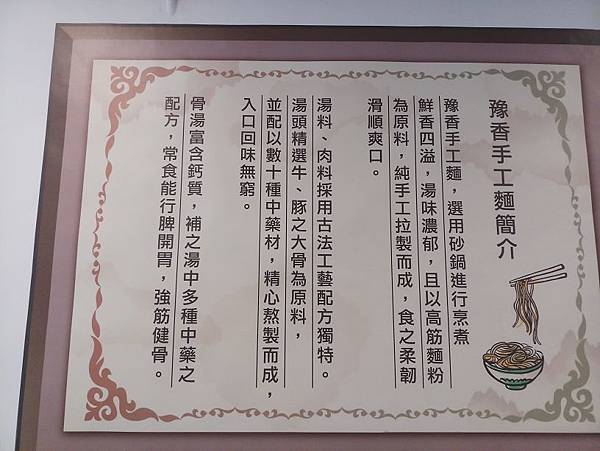 豫香手工麵簡介
豫香手工麵，選用砂鍋進行烹煮
鮮香四溢，湯味濃郁，且以高筋麵粉
為原料，純手工拉製而成，食之柔韌
滑順爽口。
湯料、肉料採用古法工藝配方獨特。
湯頭精選牛、豚之大骨為原料，
並配以數十種中藥材，精心熬製而成，
入口回味無窮。
骨湯富含鈣質，補之湯中多種中藥之
配方，常食能行脾開胃，強筋健骨。